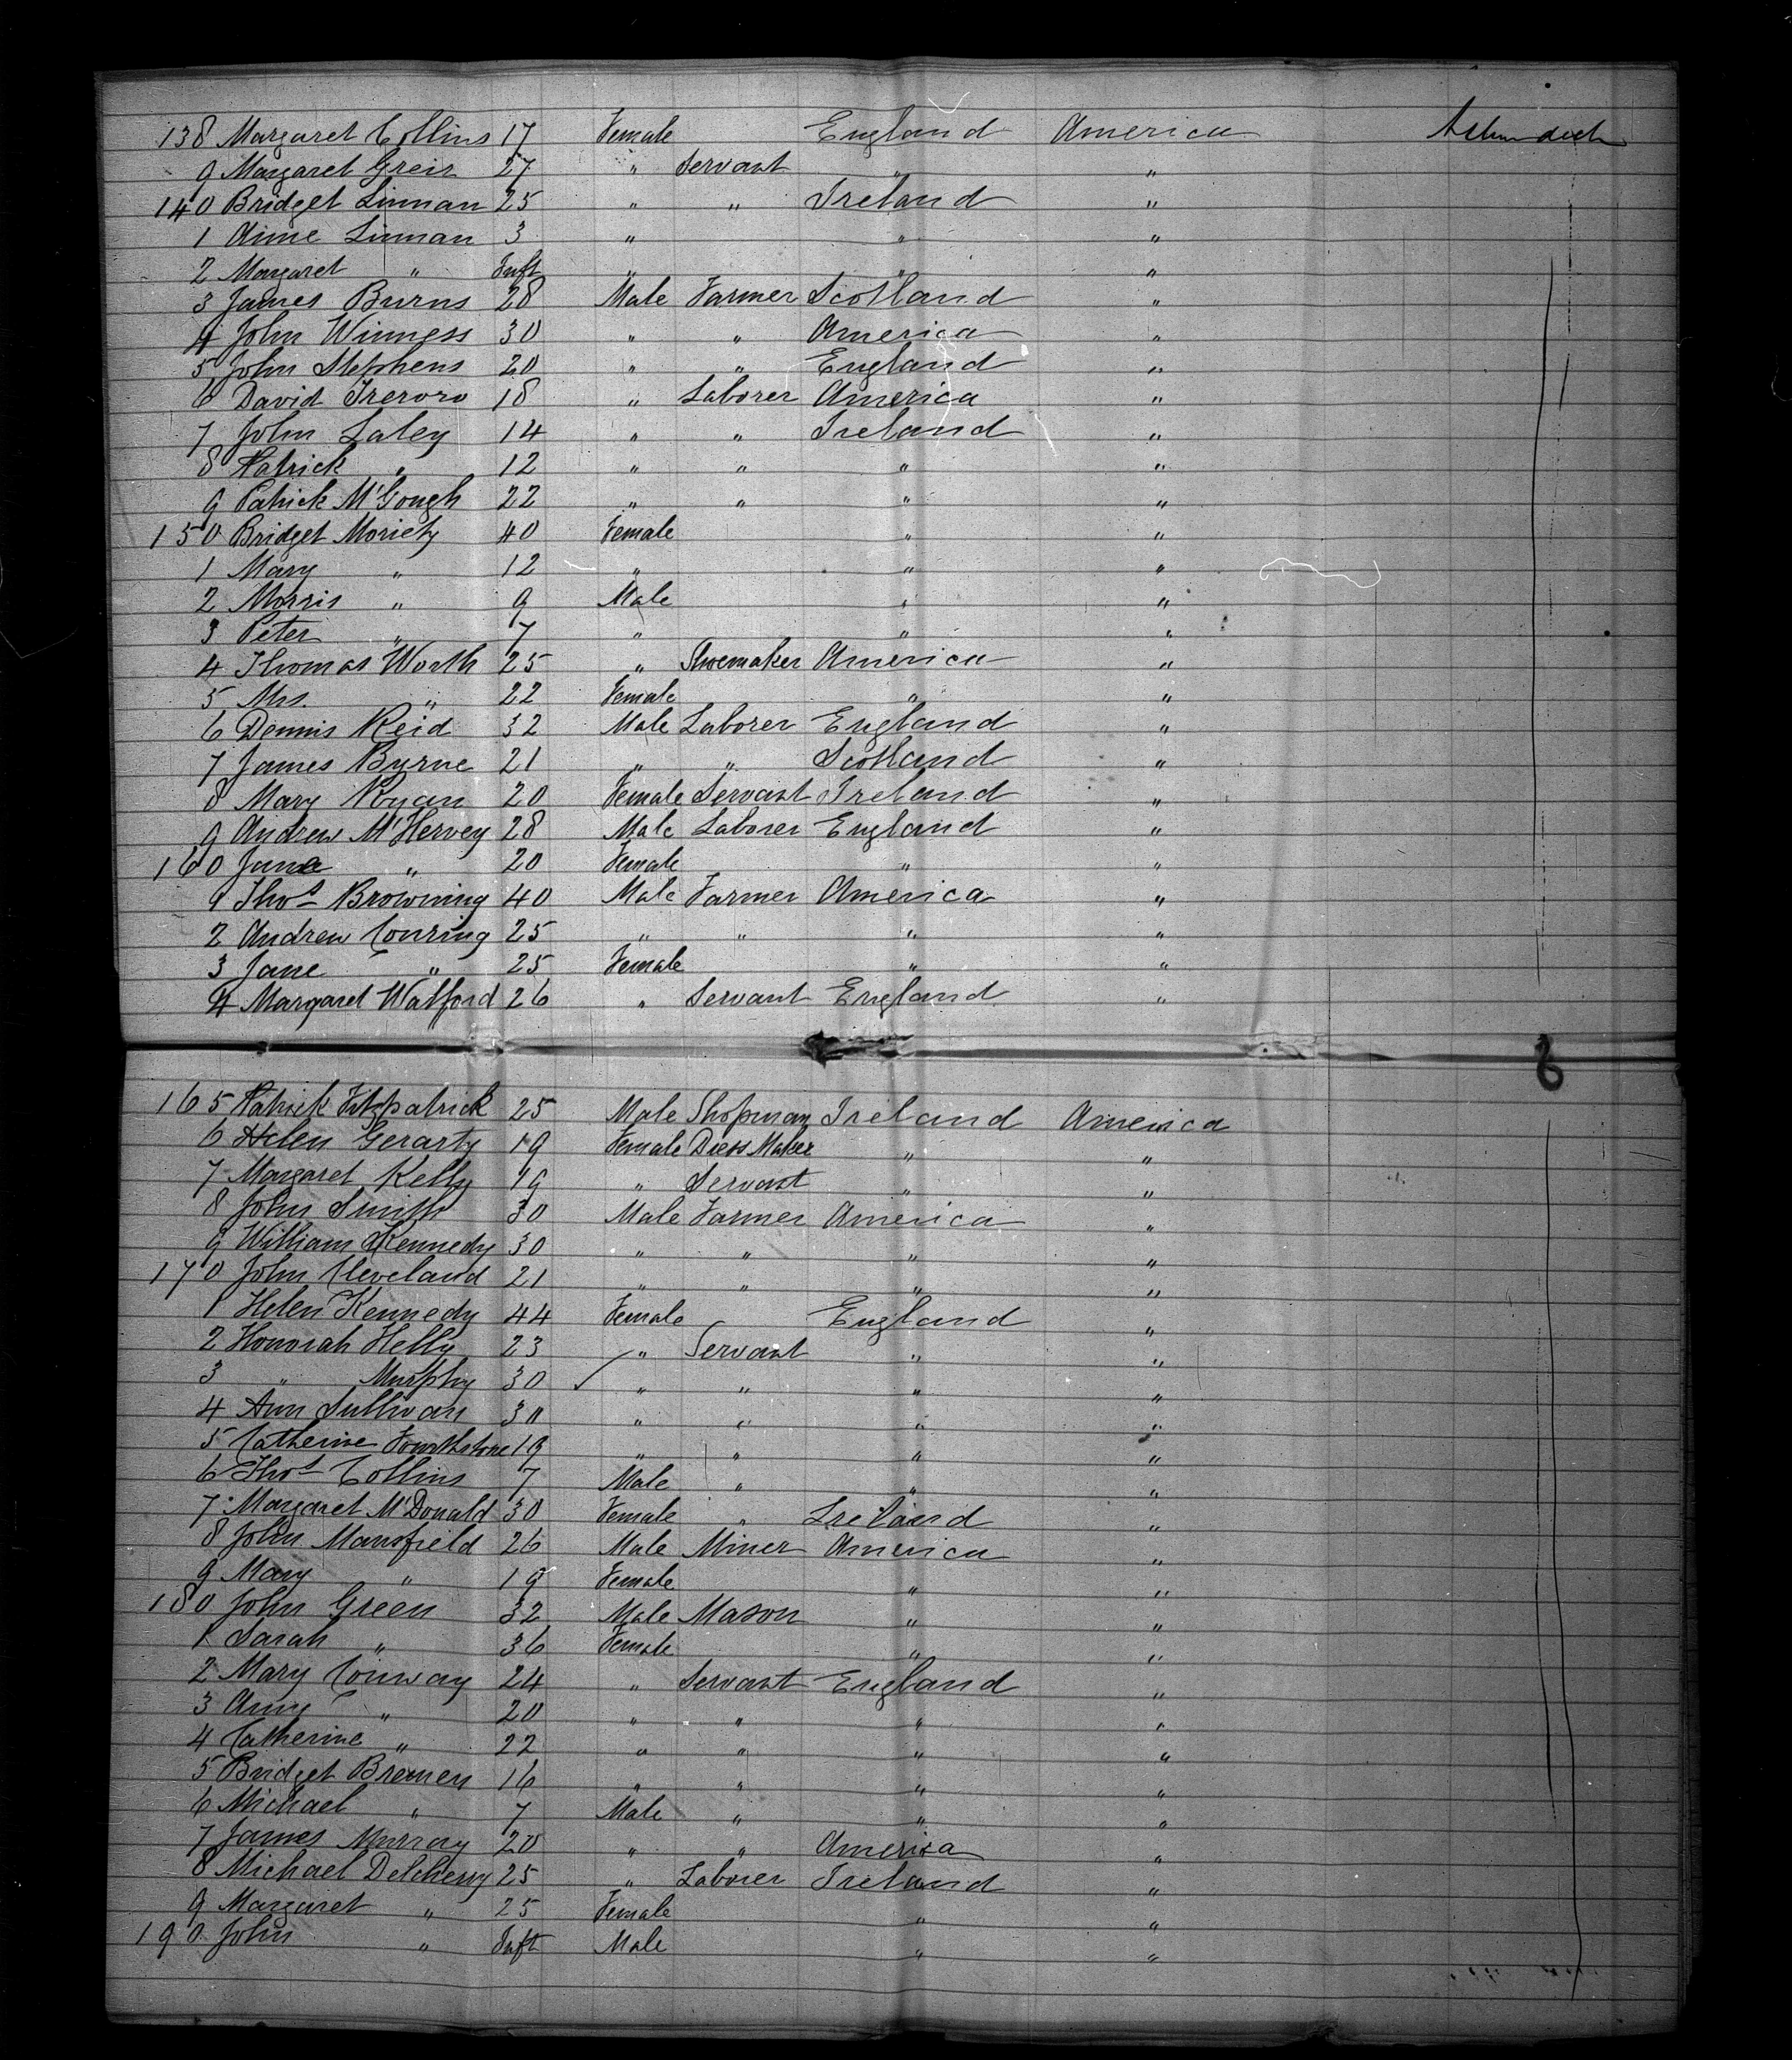 138 Margaret Collins 17 Female England America
9 Margaret Greir 27 " Servant " "
140 Bridget Linnan 25 " " Ireland "
1 Annie Linnan 3 " " "
2 Margaret " Inft " " "
3 James Burns 28 Male Farmer Scotland "
4 John Winness 30 " " America "
5 John Stephens 20 " " England "
6 David Treroro 18 " Laborer America "
7 John Laley 14 " " Ireland "
8 Patrick " 12 " " " "
9 Patrick McGough 22 " " " "
150 Bridget Moriety 40 Female " "
1 Mary " 12 " " "
2 Morris " 9 Male " "
3 Peter " 7 " " "
4 Thomas Worth 25 " Shoemaker America "
5 Mrs. " 22 Female " "
6 Dennis Reid 32 Male Laborer England "
7 James Byrne 21 " " Scotland "
8 Mary Ryan 20 Female Servant Ireland "
9 Andrew McHervey 28 Male Laborer England "
160 Jane " 20 Female " "
9 Thos Browning 40 Male Farmer America "
2 Andrew Conring 25 " " " "
3 Jane " 25 Female " "
4 Margaret Watford 26 " Servant England "
8
165 Patrick Fitzpatrick 25 Male Shopman Ireland America
6 Helen Gerarty 19 Female Dress Maker " "
7 Margaret Kelly 19 " Servant " "
8 John Smith 30 Male Farmer America "
9 William Kennedy 30 " " " "
170 John Cleveland 21 " " " "
1 Helen Kennedy 44 Female England "
2 Honorah Helly 23 " Servant " "
3 " Murphy 30 " " " "
4 Ann Sullivan 30 " " " "
5 Catherine Fourthstone 19 " " " "
6 Thos Collins 7 Male " " "
7 Margaret McDonald 30 Female " Ireland "
8 John Mansfield 26 Male Miner America "
9 Mary " 19 Female " "
180 John Green 32 Male Mason " "
1 Sarah " 36 Female " "
2 Mary Conway 24 " Servant England "
3 Amy " 20 " " " "
4 Catherine " 22 " " " "
5 Bridget Bremen 16 " " " "
6 Michael " 7 Male " " "
7 James Murray 20 " " America "
8 Michael Delcherry 25 " Laborer Ireland "
9 Margaret " 25 Female " "
190 John " Inft Male " "